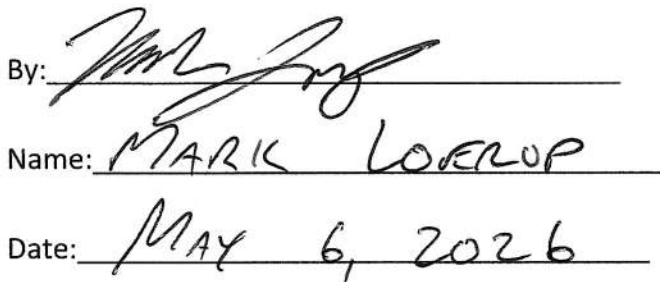 By:
Name: MARK LOVERUP
Date: MAY 6, 2026